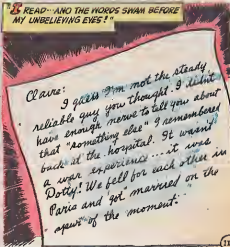 I READ--AND THE WORDS SWAM BEFORE
MY UNBELIEVING EYES!"
Claire:
I guess I'm not the steady
reliable guy you thought. I didn't
have enough nerve to tell you about
that "something else" I remembered
back at the hospital. It wasn't
a war experience...it was
Dotty! We fell for each other in
Paris and got married on the
"spur" of the moment."